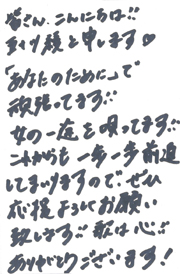 皆さん、こんにちは!!
と申します♡
「あなたのために」で
頑張ってます!!
女の一途を唄ってます!!
これからも一歩一歩前進
してまいりますので、ぜひ
応援よろしくお願い
致します!! 歌は心!!
ありがとうございます!